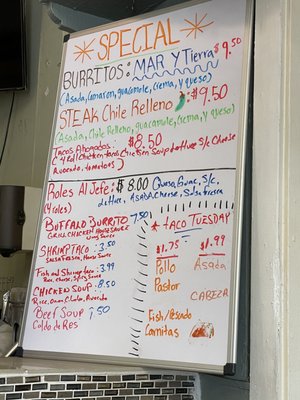 * SPECIAL *
BURRITOS: MAR Y Tierra $9.50
(Asada, Camaron, guacamole, crema, y queso)
STEAK Chile Relleno $9.50
(Asada, Chile Relleno, guacamole, crema, y queso)
Tacos Ahogados: $8.50
(4 Roll Chicken taco Chicken Soup lettuce S/c Cheese
Avocado, tomatoes)
Roles Al Jefe: $8.00 Queso, Guac, S/c,
(4 roles) lettuce, ASADA, Cheese, Salsa fresca
BUFFALO BURRITO 7.50
GRILL CHICKEN
SHRIMP TACO: 3.50
SALSA FRESCA, House Sauce
Fish and Shrimp taco: 3.99
CHICKEN SOUP: 8.50
Rice, Avocado
BEEF SOUP 7.50
Caldo de Res
* TACO TUESDAY
$1.75 $1.99
Pollo Asada
Pastor
CABEZA
Fish/Pescado
Carnitas